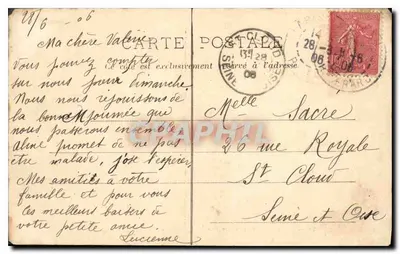 28/6 - 06
CARTE POSTALE
Ce côté est exclusivement réservé à l'adresse.
Ma chère Valérie
Vous pouvez compter
sur nous pour Dimanche.
Nous nous réjouissons de
la bonne journée que
nous passerons ensemble
Aline promet de ne pas
être malade, jose l'espérer.
Mes amitiés à votre
famille et pour vous
les meilleurs baisers à
votre petite amie.
Lucienne
Melle Sacre
26 rue Royale
St Cloud
Seine et Oise
ST-CLOUD
28
06
SEINE
28
06
CPAPHIL